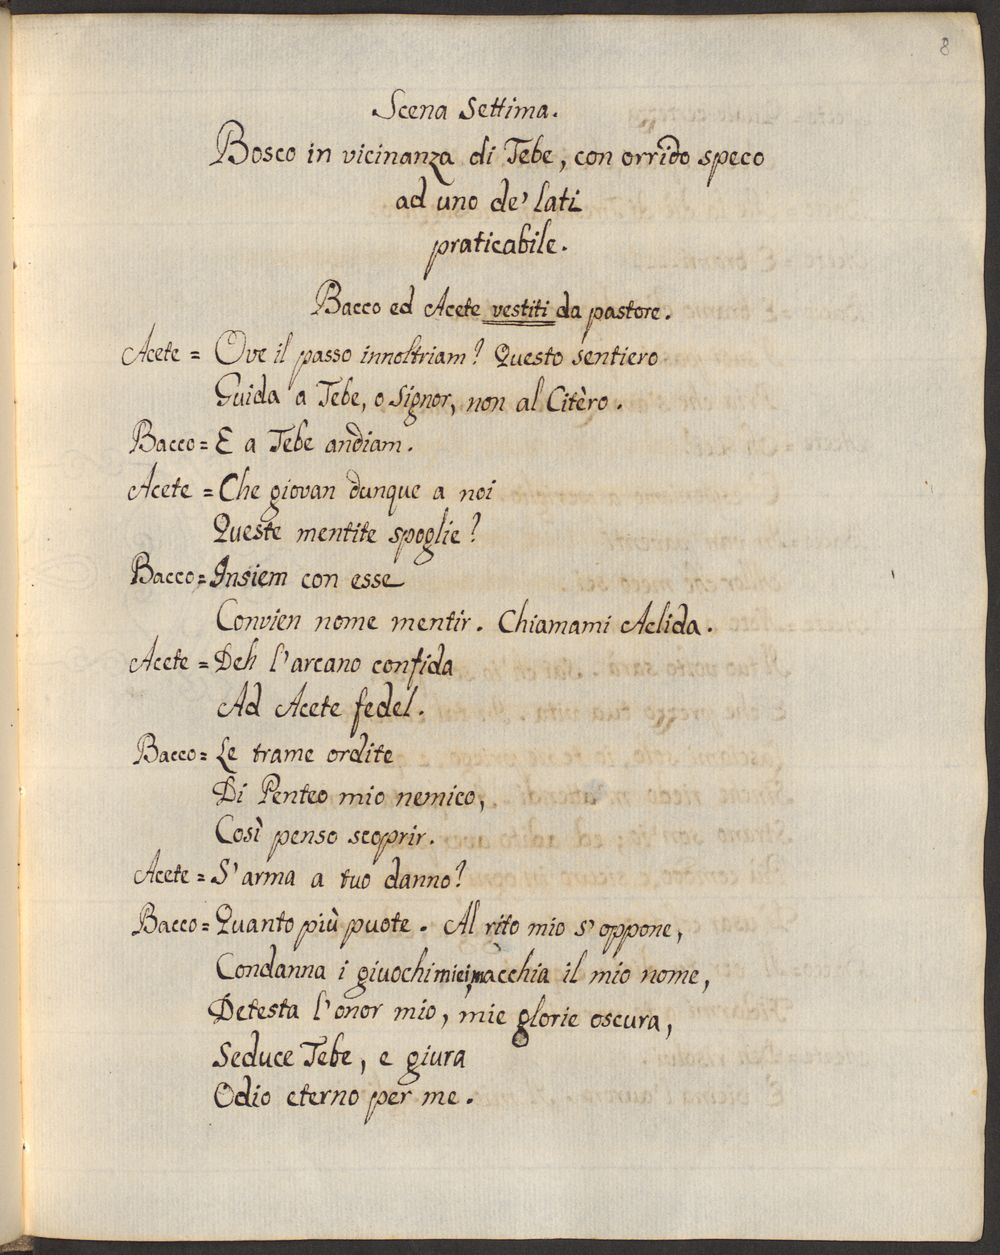 8
Scena Settima.
Bosco in vicinanza di Tebe, con orrido speco
ad uno de' lati
praticabile.
Bacco ed Acete vestiti da pastore.
Acete = Ove il passo innoltriam? Questo sentiero
Guida a Tebe, o Signor, non al Citèro.
Bacco = E a Tebe andiam.
Acete = Che giovan dunque a noi
Queste mentite spoglie?
Bacco = Insiem con esse
Convien nome mentir. Chiamami Aclida.
Acete = Deh l'arcano confida
Ad Acete fedel.
Bacco = Le trame ordite
Di Penteo mio nemico,
Così penso scoprir.
Acete = S'arma a tuo danno?
Bacco = Quanto più puote. Al rito mio s'oppone,
Condanna i giuochi miei, macchia il mio nome,
Detesta l'onor mio, mie glorie oscura,
Seduce Tebe, e giura
Odio eterno per me.